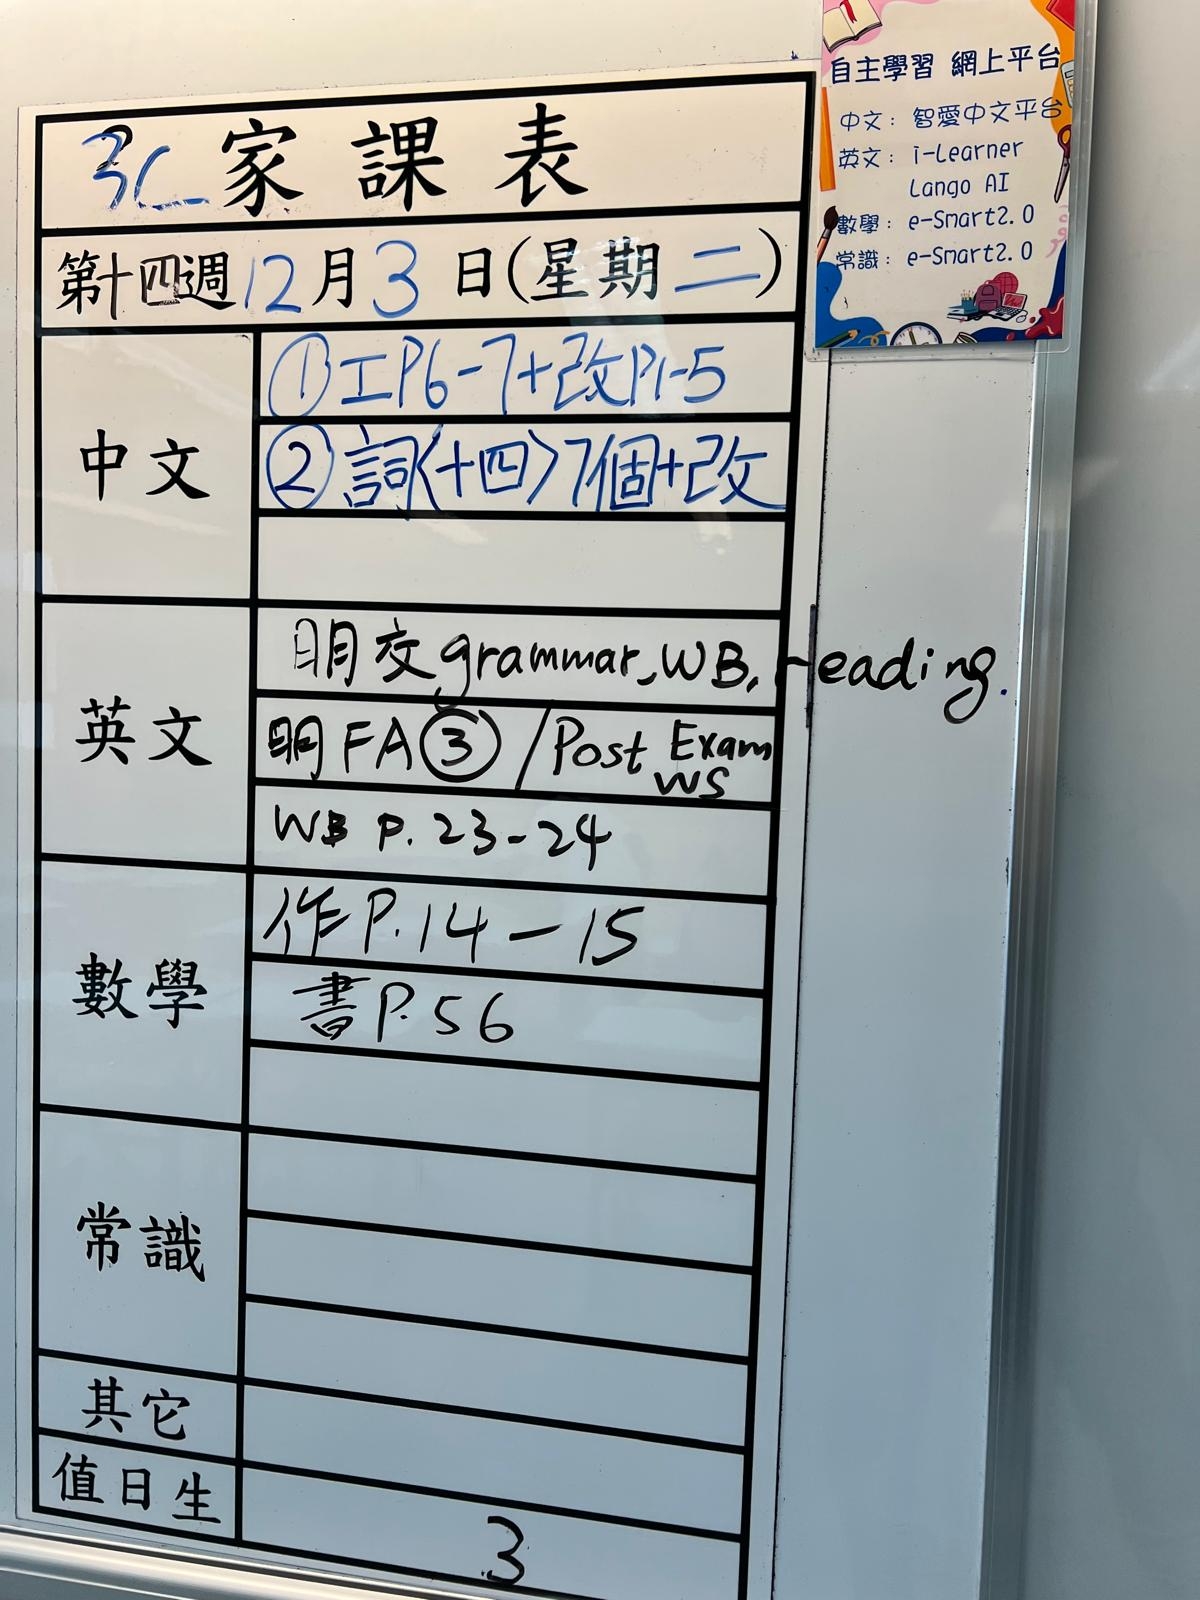 3C 家課表
第十四週12月3日(星期二)
中文
①工P6-7+改P1-5
②詞<十四>7個+改
英文
明交grammar, WB, reading.
明FA③/Post Exam WS
WB P.23-24
數學
作P.14-15
書P.56
常識
其它
值日生
3
自主學習 網上平台
中文: 智愛中文平台
英文: i-Learner
Lango AI
數學: e-Smart2.0
常識: e-Smart2.0